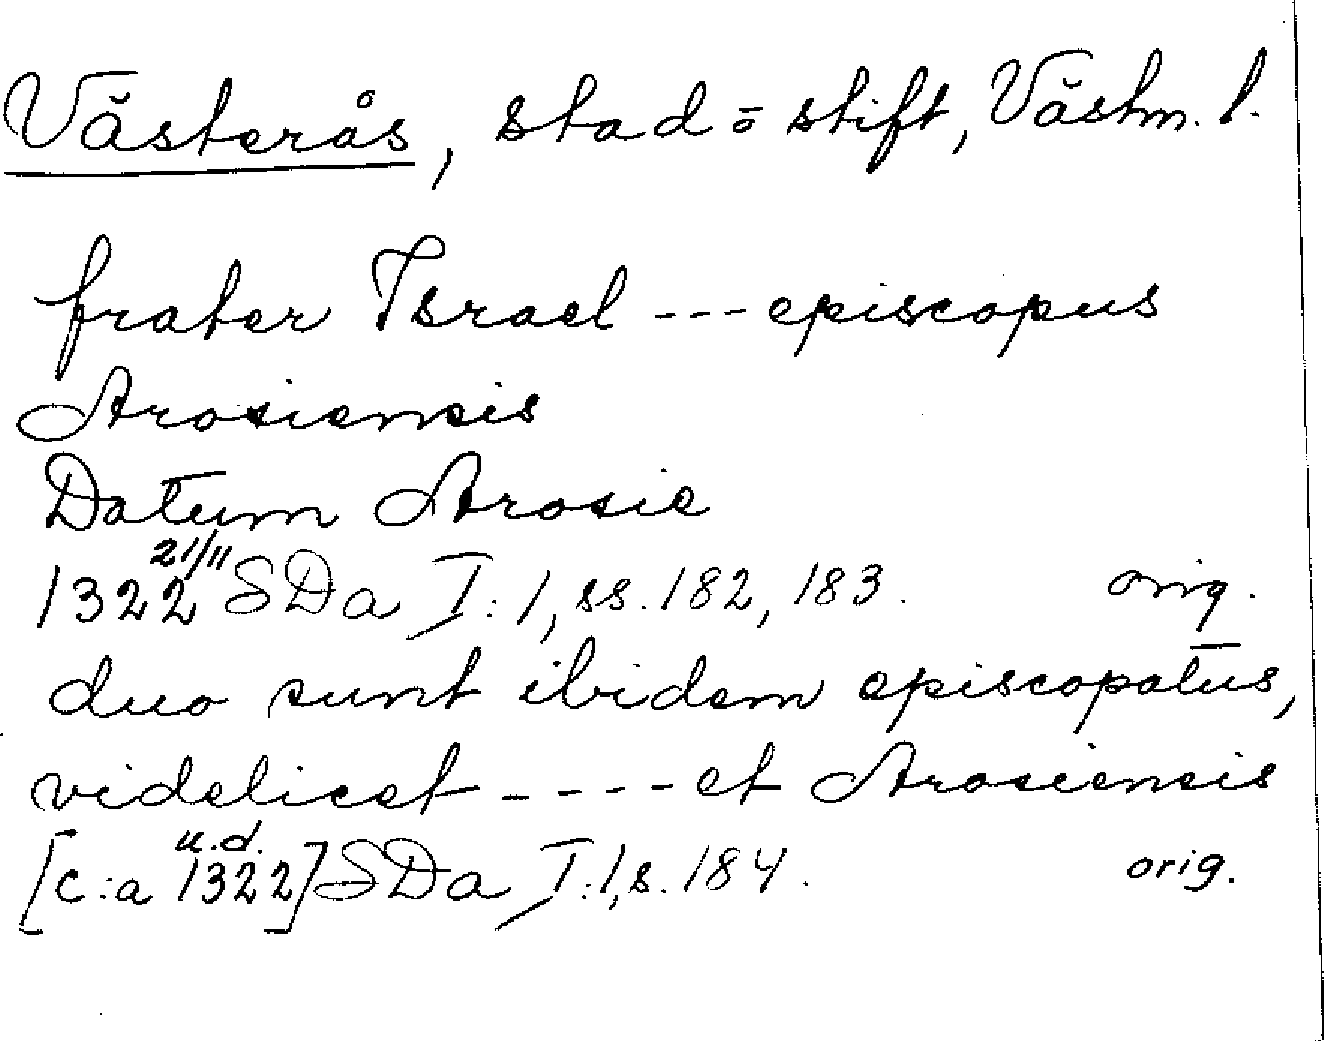 Västerås, stad o stift, Västm. l.
frater Israel --- episcopus
Arosiensis
Datum Arosie
1322 21/11 SDa I:1, ss. 182, 183. orig.
duo sunt ibidem episcopatus,
videlicet ---- et Arosiensis
[c:a 1322 u.d.] SDa I:1, s. 184. orig.